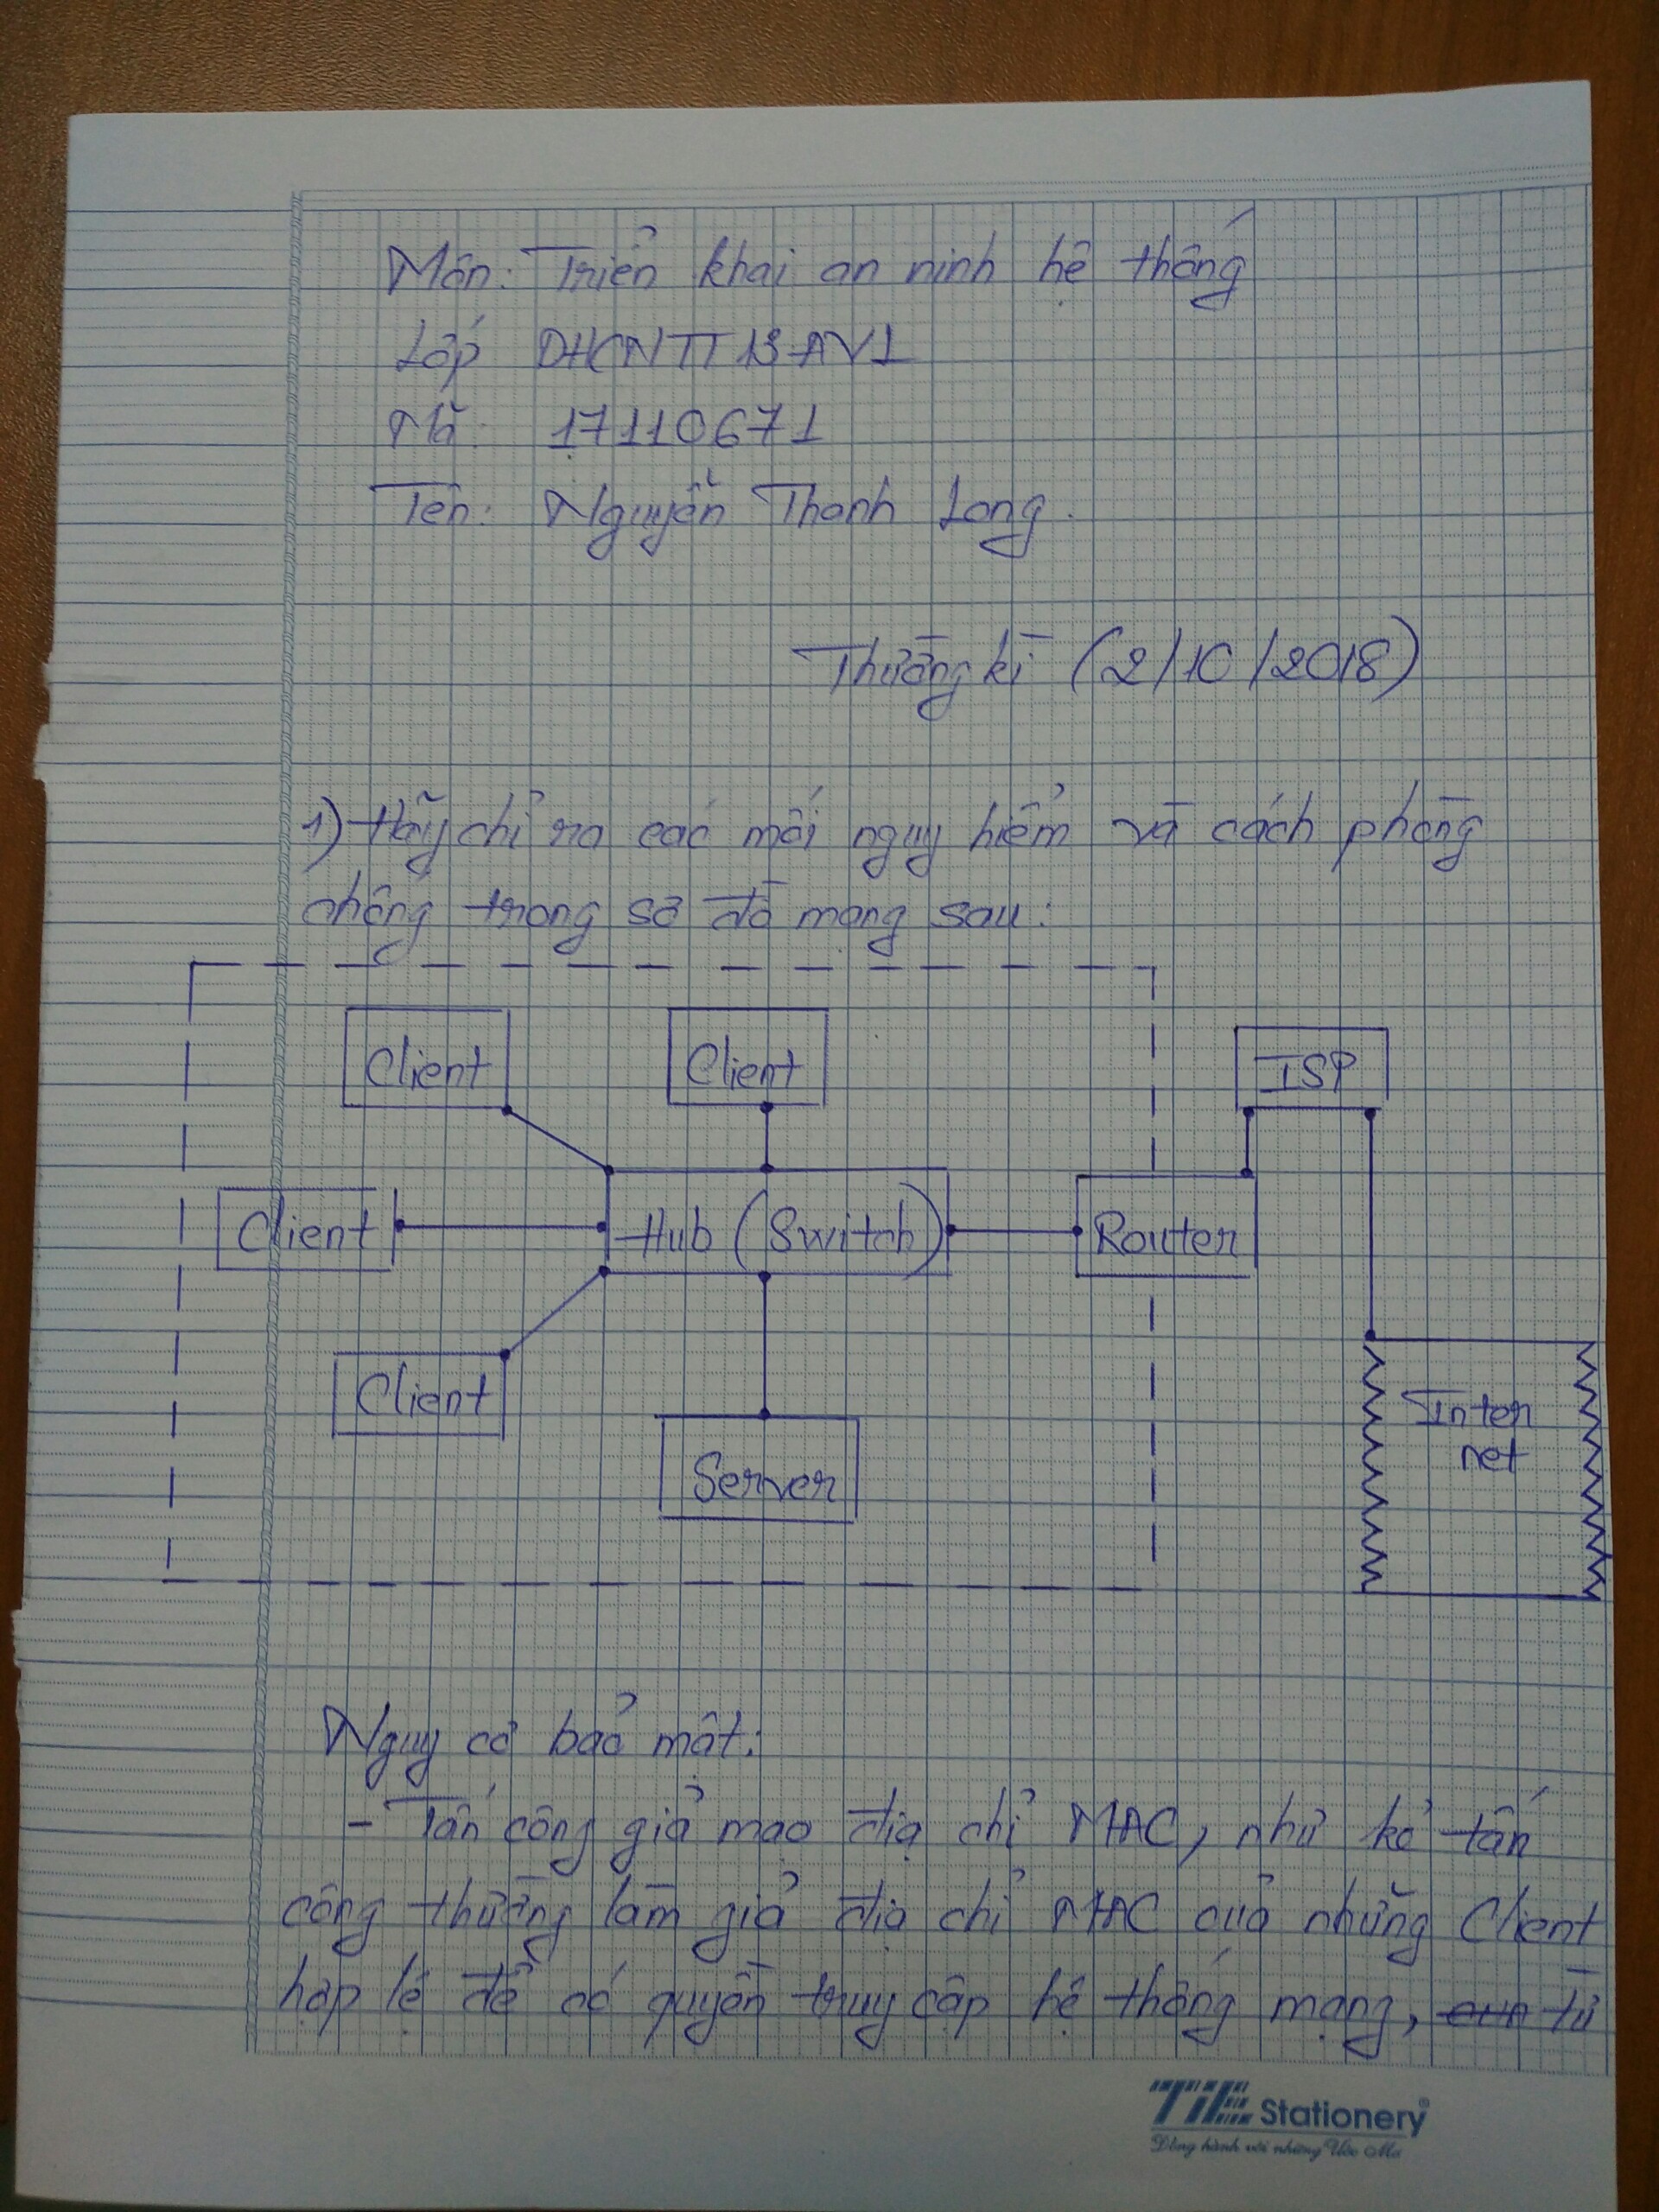 Môn: Triển khai an ninh hệ thống
Lớp DHCNTT13AVL
Mã: 17110671
Tên: Nguyễn Thanh Long.
Thường kì (2/10/2018)
1) Hãy chỉ ra các mối nguy hiểm và cách phòng
chống trong sơ đồ mạng sau:
Client
Client
ISP
Client
Hub (Switch)
Router
Client
Inter
net
Server
Nguy cơ bảo mật:
- Tấn công giả mạo địa chỉ MAC, như kẻ tấn
công thường làm giả địa chỉ MAC của những Client
hợp lệ để có quyền truy cập hệ thống mạng, từ
TiE Stationery
Đồng hành với những Ước Mơ